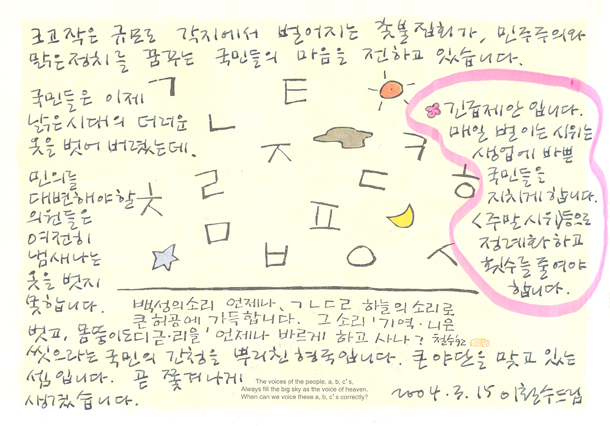 크고작은 규모로 각지에서 벌어지는 촛불집회가, 민주주의와
맑은정치를 꿈꾸는 국민들의 마음을 전하고 있습니다.
국민들은 이제
낡은시대의 더러운
옷을 벗어 버렸는데,
민의를
대변해야할
의원들은
여전히
냄새나는
옷을 벗지
못합니다.
벗고, 몸뚱이도
씻으라는 국민의 간청을 뿌리친 형국입니다. 큰 야단을 맞고 있는
셈입니다. 곧 쫓겨나게
생겼습니다.
ㄱ ㅌ
ㄴ ㅈ ㅋ
ㅊ ㄹ ㄷ ㅎ
ㅁ ㅍ
ㅂ ㅇ ㅅ
긴급제안입니다.
매일 벌이는 시위는
생업에 바쁜
국민들을
지치게 합니다.
<주말시위>등으로
정례화하고
횟수를 줄여야
합니다.
백성의소리 언제나, ㄱㄴㄷㄹ 하늘의 소리로
큰허공에 가득합니다. 그 소리 '기역·니은
디귿·리을' 언제나 바르게 하고 사나? 철수2
The voices of the people, a, b, c's,
Always fill the big sky as the voice of heaven.
When can we voice these a, b, c's correctly?
2004.3.15 이철수드림